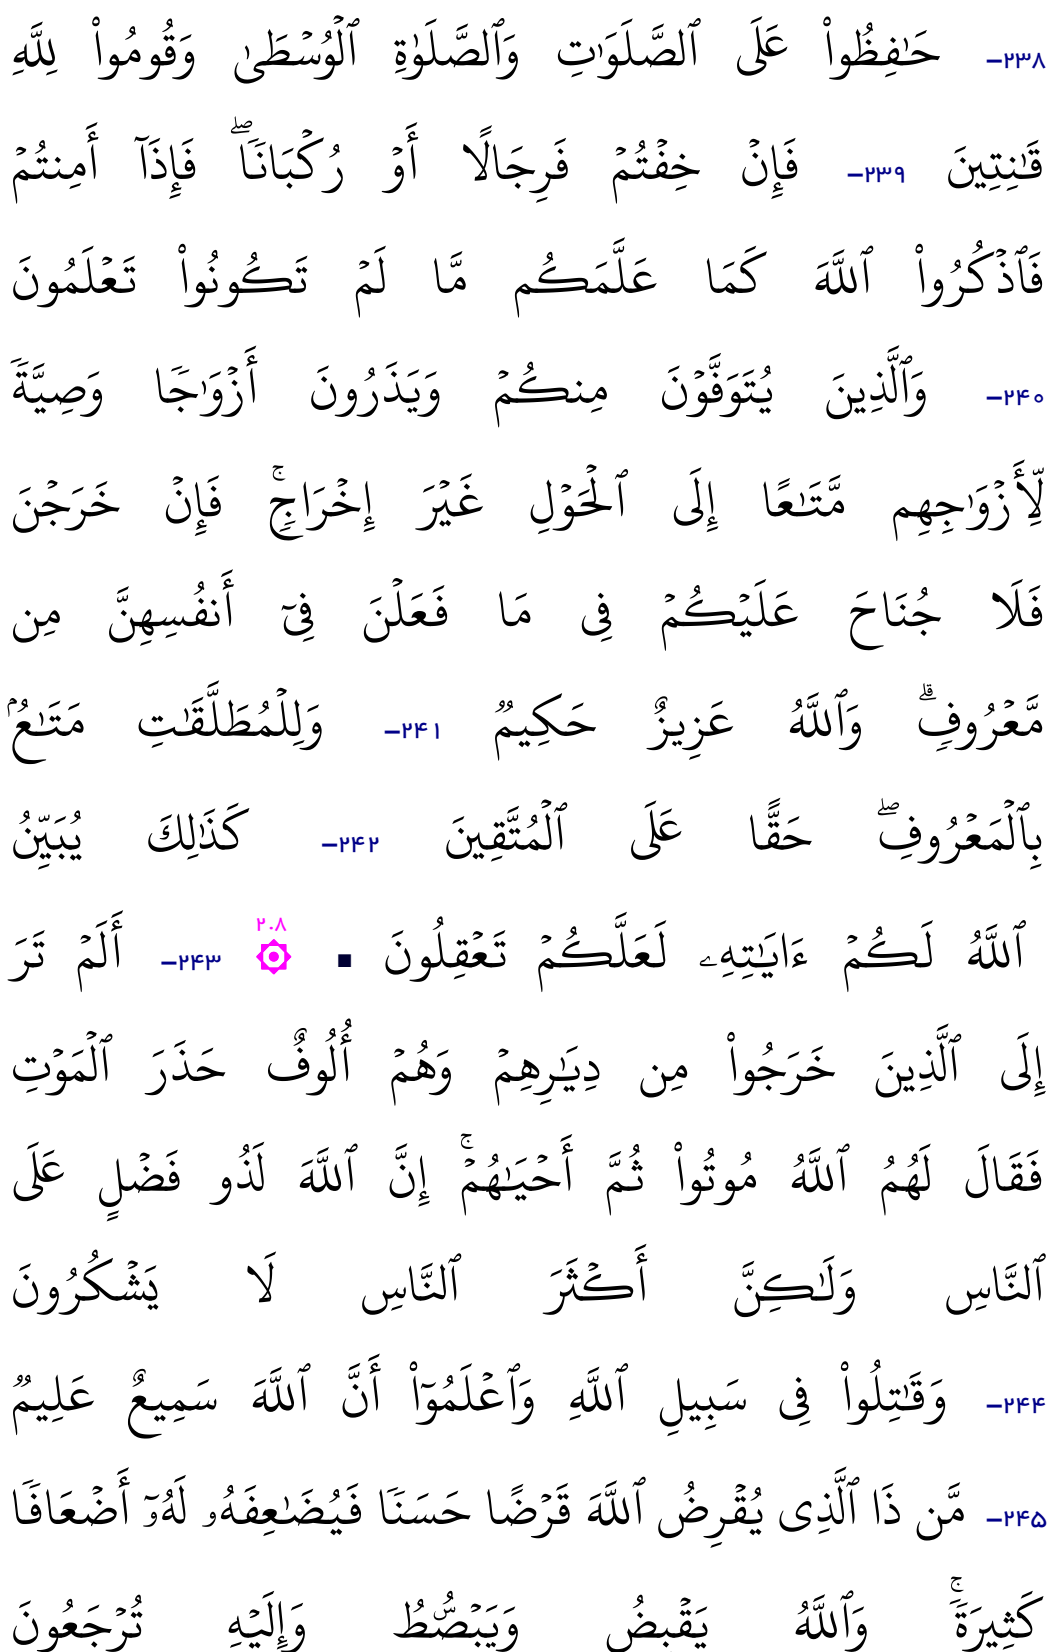 ۲۳۸- حَـٰفِظُوا۟ عَلَى ٱلصَّلَوَٰتِ وَٱلصَّلَوٰةِ ٱلْوُسْطَىٰ وَقُومُوا۟ لِلَّهِ
قَـٰنِتِينَ ۲۳۹- فَإِنْ خِفْتُمْ فَرِجَالًا أَوْ رُكْبَانًۭا ۖ فَإِذَآ أَمِنتُمْ
فَٱذْكُرُوا۟ ٱللَّهَ كَمَا عَلَّمَكُم مَّا لَمْ تَكُونُوا۟ تَعْلَمُونَ
۲۴۰- وَٱلَّذِينَ يُتَوَفَّوْنَ مِنكُمْ وَيَذَرُونَ أَزْوَٰجًۭا وَصِيَّةًۭ
لِّأَزْوَٰجِهِم مَّتَـٰعًا إِلَى ٱلْحَوْلِ غَيْرَ إِخْرَاجٍۢ ۚ فَإِنْ خَرَجْنَ
فَلَا جُنَاحَ عَلَيْكُمْ فِى مَا فَعَلْنَ فِىٓ أَنفُسِهِنَّ مِن
مَّعْرُوفٍۢ ۗ وَٱللَّهُ عَزِيزٌ حَكِيمٌۭ ۲۴۱- وَلِلْمُطَلَّقَـٰتِ مَتَـٰعٌۢ
بِٱلْمَعْرُوفِ ۖ حَقًّا عَلَى ٱلْمُتَّقِينَ ۲۴۲- كَذَٰلِكَ يُبَيِّنُ
ٱللَّهُ لَكُمْ ءَايَـٰتِهِۦ لَعَلَّكُمْ تَعْقِلُونَ ▪ ۞ ۲۰۸ ۲۴۳- أَلَمْ تَرَ
إِلَى ٱلَّذِينَ خَرَجُوا۟ مِن دِيَـٰرِهِمْ وَهُمْ أُلُوفٌ حَذَرَ ٱلْمَوْتِ
فَقَالَ لَهُمُ ٱللَّهُ مُوتُوا۟ ثُمَّ أَحْيَـٰهُمْ ۚ إِنَّ ٱللَّهَ لَذُو فَضْلٍ عَلَى
ٱلنَّاسِ وَلَـٰكِنَّ أَكْثَرَ ٱلنَّاسِ لَا يَشْكُرُونَ
۲۴۴- وَقَـٰتِلُوا۟ فِى سَبِيلِ ٱللَّهِ وَٱعْلَمُوٓا۟ أَنَّ ٱللَّهَ سَمِيعٌ عَلِيمٌۭ
۲۴۵- مَّن ذَا ٱلَّذِى يُقْرِضُ ٱللَّهَ قَرْضًا حَسَنًۭا فَيُضَـٰعِفَهُۥ لَهُۥٓ أَضْعَافًۭا
كَثِيرَةًۭ ۚ وَٱللَّهُ يَقْبِضُ وَيَبْصُۜطُ وَإِلَيْهِ تُرْجَعُونَ